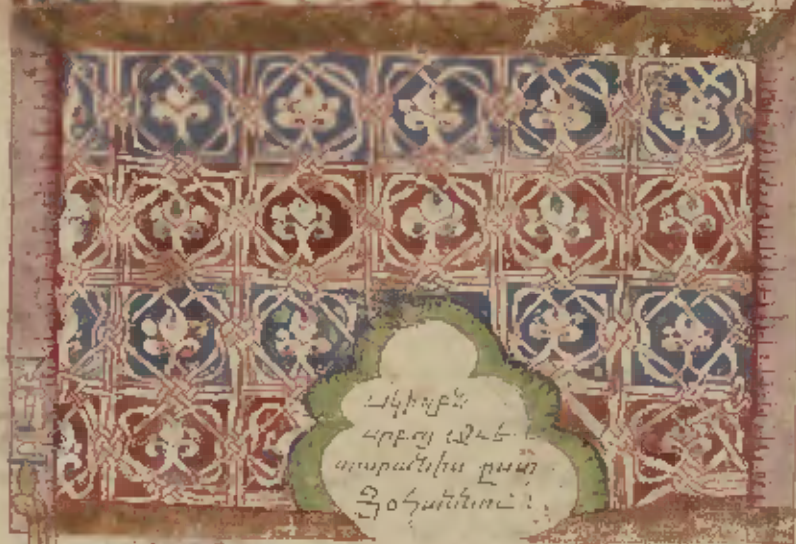 Սկիզբն
սրբոյ աւե
տարանիս ըստ
Յօհաննու :